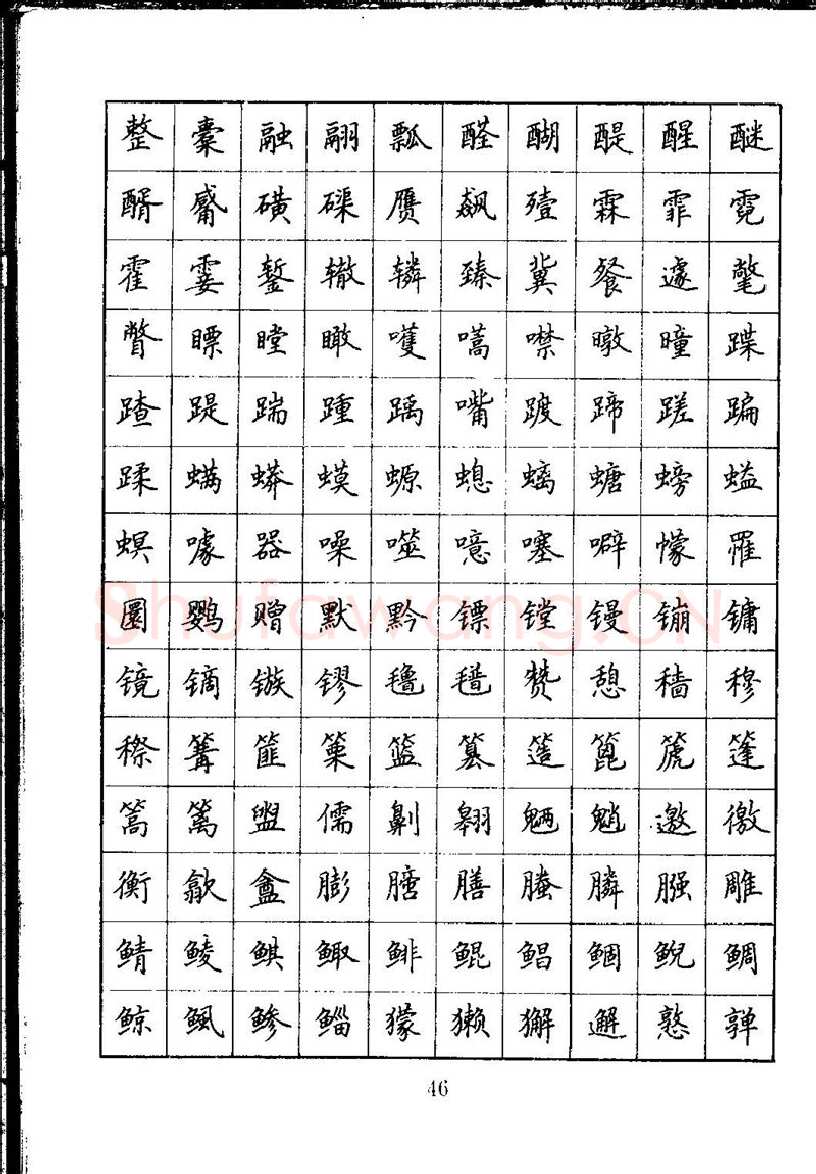 整橐融翮瓢醛醐醍醒醚
醑觱磺磲赝飙殪霖霏霓
霍霎錾辙辚臻冀餐遽氅
瞥瞟瞠瞰嚄嚆噤暾曈蹀
蹅踶踹踵踽嘴踱蹄蹉蹁
蹂螨蟒蟆螈螅螭螗螃螠
螟噱器噪噬噫噻噼幪罹
圜鹦赠默黔镖镗镘镚镛
镜镝镞镠氇氆赞憩穑穆
穄篝篚篥篮篡簉篦篪篷
篙篱盥儒劓翱魉魈邀徼
衡歙盦膨膪膳螣膦膙雕
鲭鲮鲯鲰鲱鲲鲳鲴鲵鲷
鲸鲺鲹鲻獴獭獬邂憝亸
46
Shufawang.CN